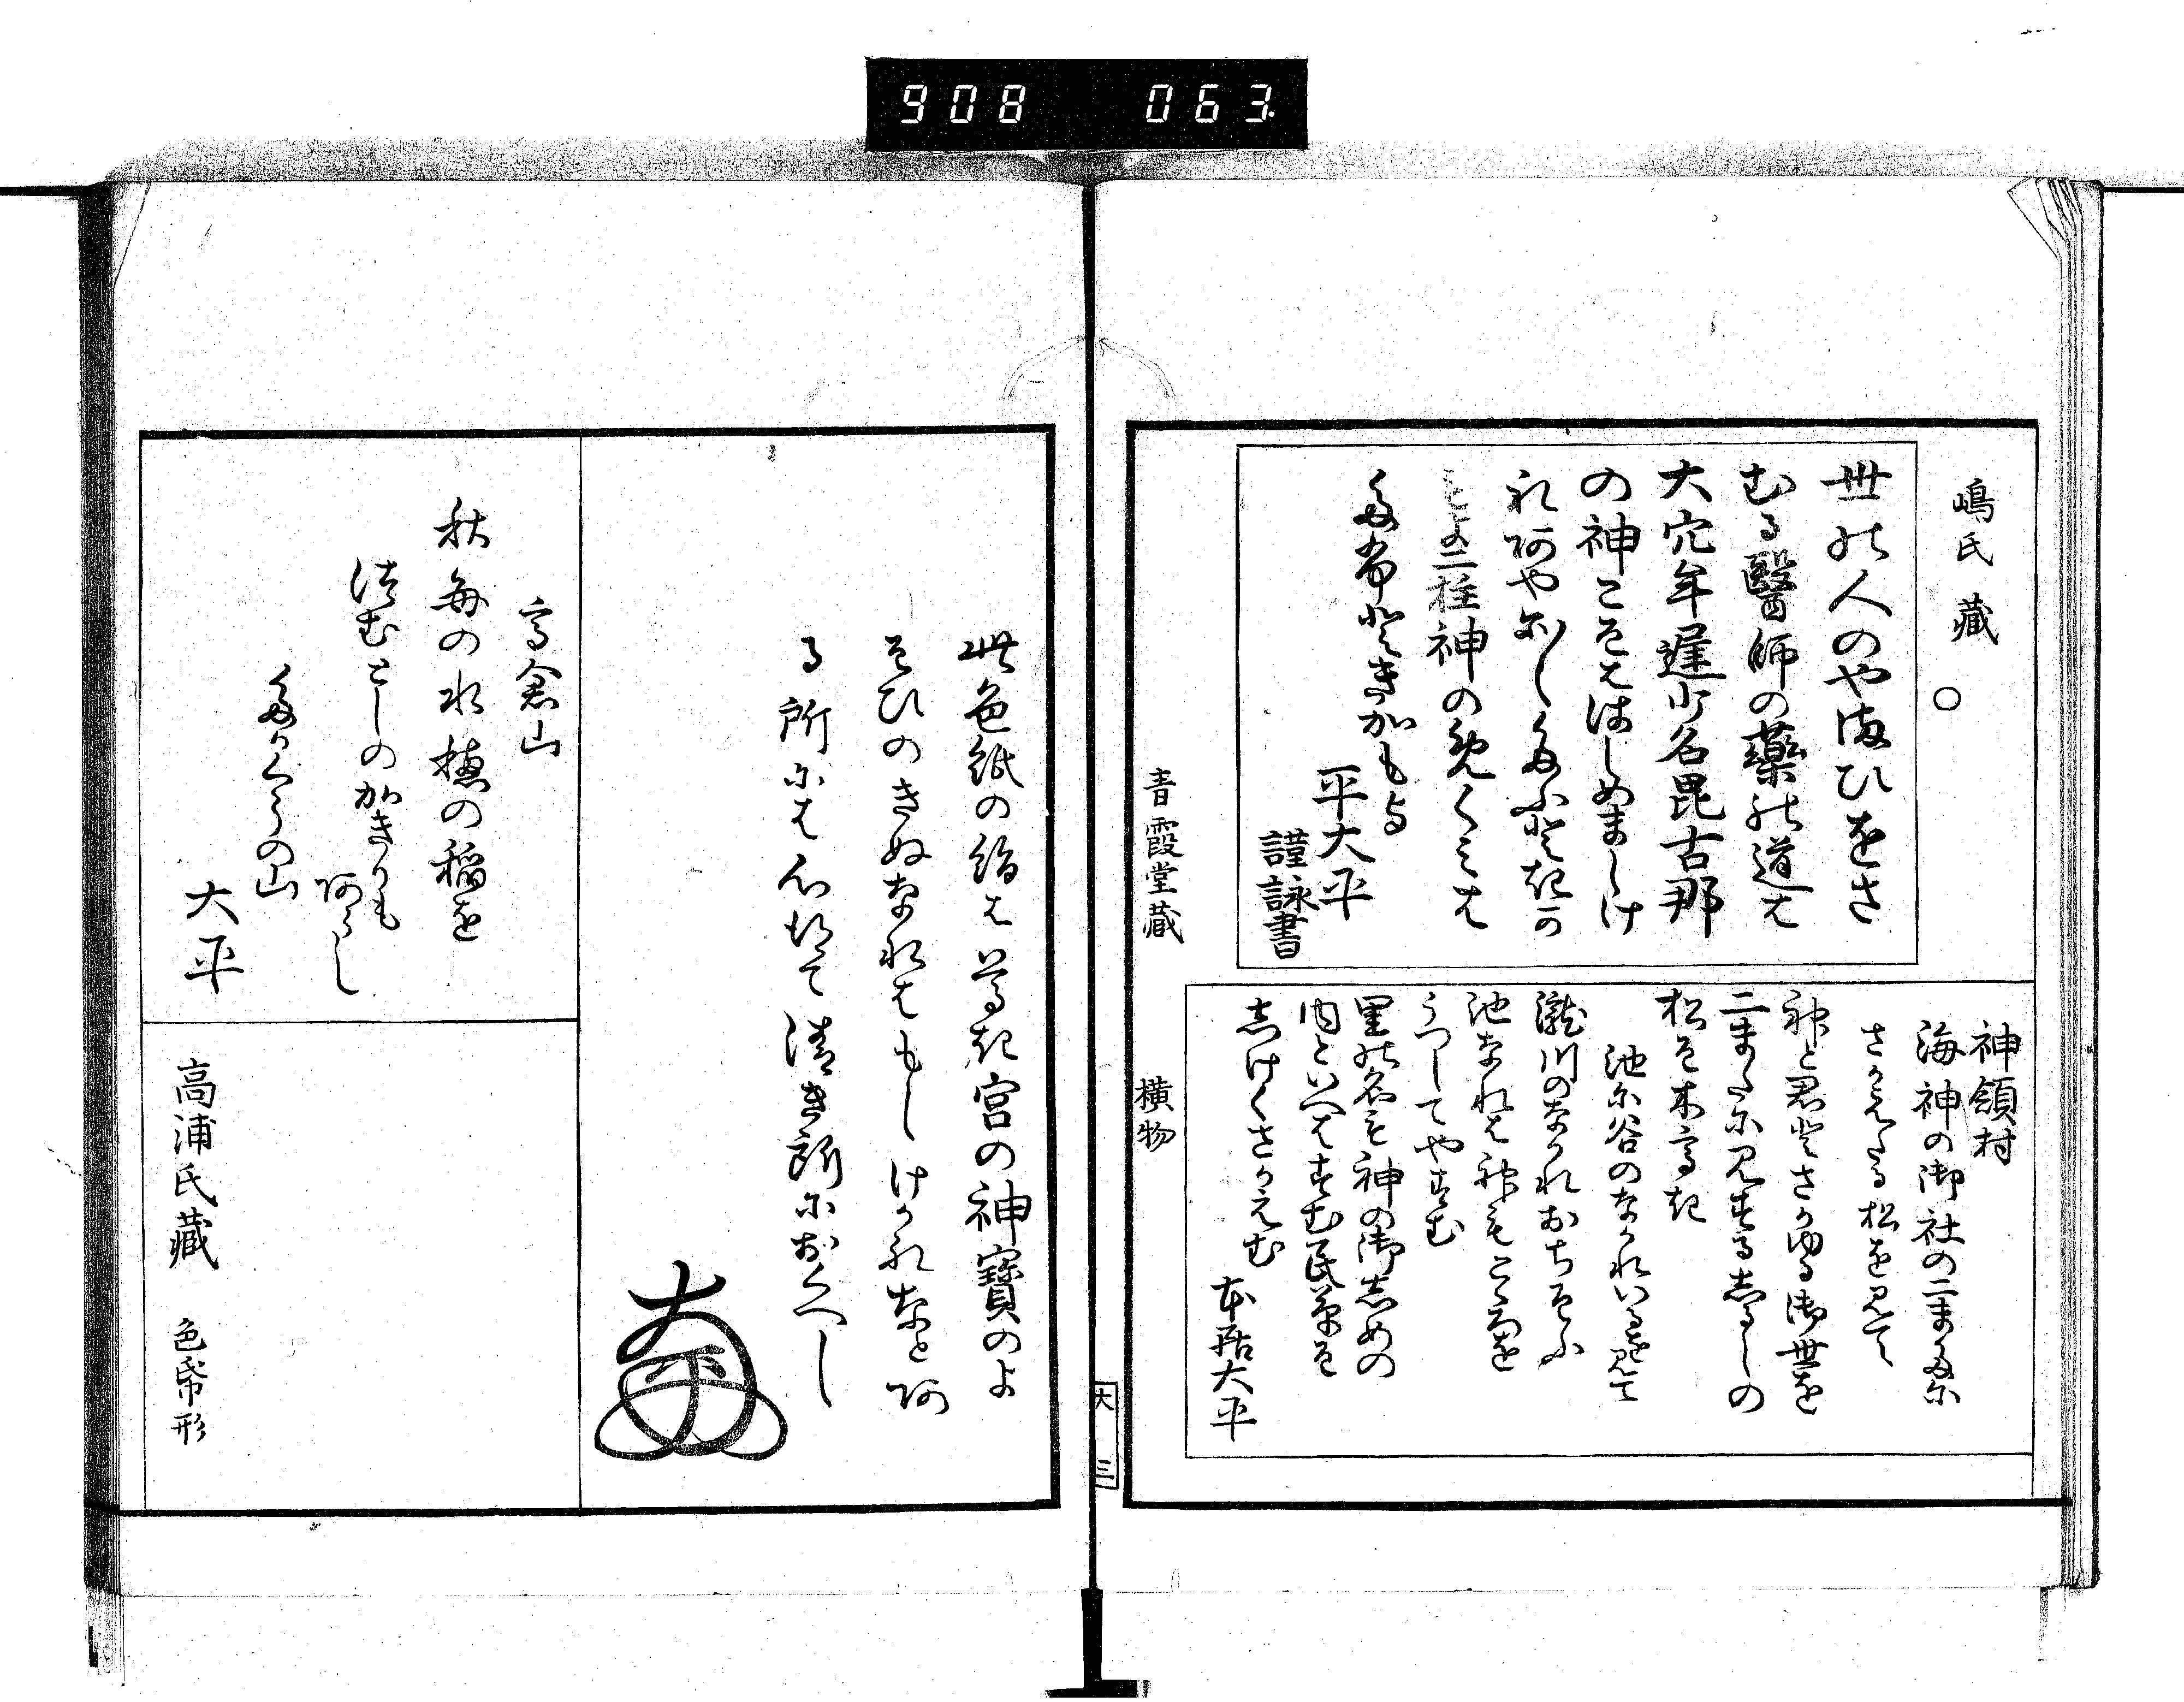 908 063
嶋氏藏 ○
世の人のやまひをさ
むる醫師の藥の道は
大穴牟遅少名毘古那
の神こそははしめましけ
れあやにしたふときか
もこの二柱神のめくみは
たふときかもよ
平大平
謹詠書
青霞堂藏
神領村
海神の御社の二またに
さかえたる松を見て
神と君とさかゆる御世を
二またに見するしるしの
松そ木高き
池に谷のなかれいるを見て
瀧川のなかれおちそふ
池なれは神もこゝろを
うつしてやすむ
里の名も神の御しめの
内といへはすむ民草そ
しけくさかえむ
本居大平
横物
大 三
此色紙の絹は尊き宮の神寶のよ
そひのきぬなれはもしけかれなとあ
る所には心して清き所におくへし
大平
高倉山
秋毎の水穂の稲を
つむとしのかきりも
あらし
たかくらの山
大平
高浦氏藏
色帋形